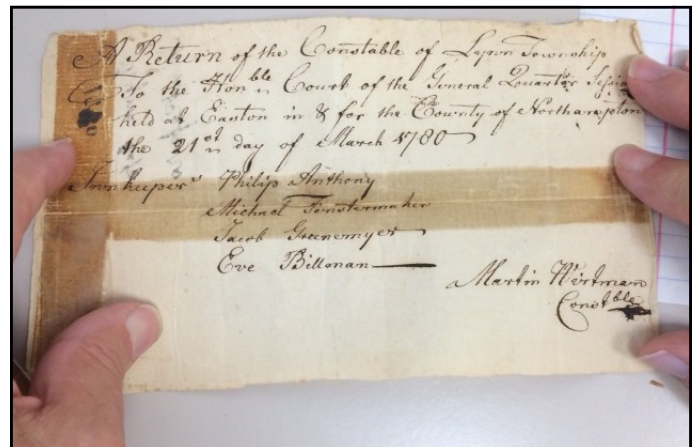 A Return of the Constable of Lynn Township
To the Honble Court of the General Quarter Sessi
held at Easton in & for the County of Northampton
the 21st day of March 1780
Innkeepers Philip Anthony
Michael Fenstermaker
Jacob Greenemyer
Eve Billman
Martin Wirtman
Constble